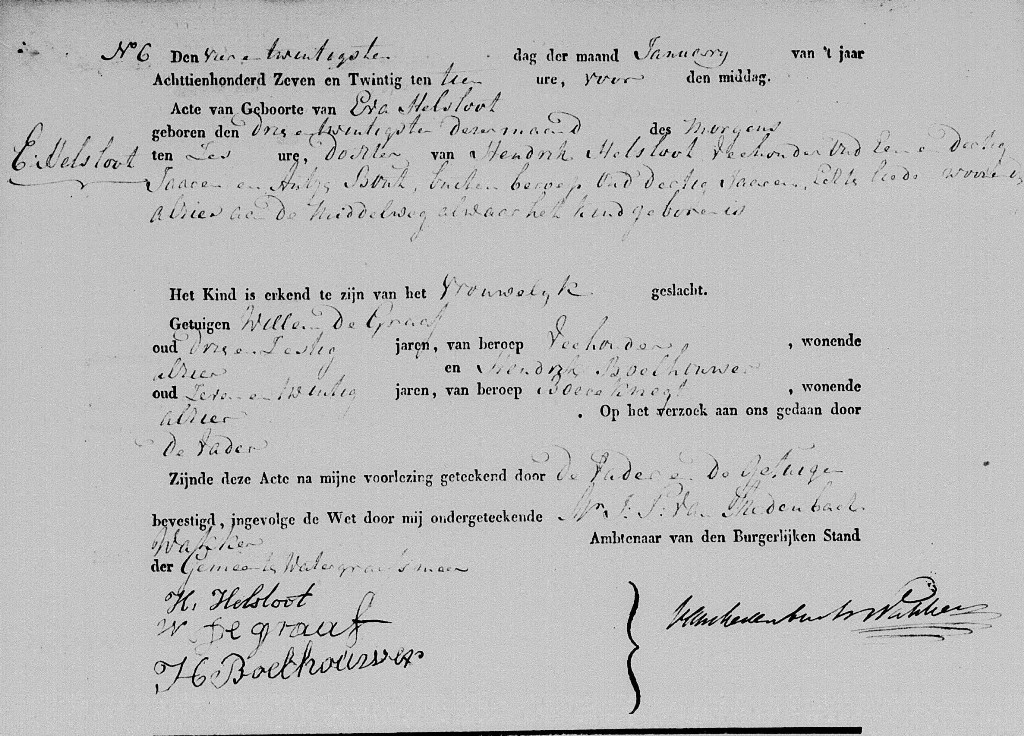 No 6 Den vier en twintigsten dag der maand January van 't jaar
Achttienhonderd Zeven en Twintig ten tien ure, voor den middag.
Acte van Geboorte van Eva Helsloot
geboren den drie en twintigsten dezer maand des Morgens
E. Helsloot
ten Zes ure, Dochter van Hendrik Helsloot Veehouder Oud Een en dertig
Jaaren en Antje Bont, buiten beroep, Oud dertig Jaaren, Echte lieden woonende
alhier aan de Middelweg alwaar het kind geboren is
Het Kind is erkend te zijn van het Vrouwelyk geslacht.
Getuigen Willem De Graaf
oud drie en Zestig jaren, van beroep Veehouder, wonende
alhier en Hendrik Boelhouwer
oud Zeven en twintig jaren, van beroep Boereknegt, wonende
alhier . Op het verzoek aan ons gedaan door
De Vader
Zijnde deze Acte na mijne voorlezing geteekend door de Vader en De Getuigen
bevestigd, ingevolge de Wet door mij ondergeteekende Mr. J. P. van
Wakker Ambtenaar van den Burgerlijken Stand
der Gemeente Watergraafsmeer
H. Helsloot
W de graaf
H Boelhouwer